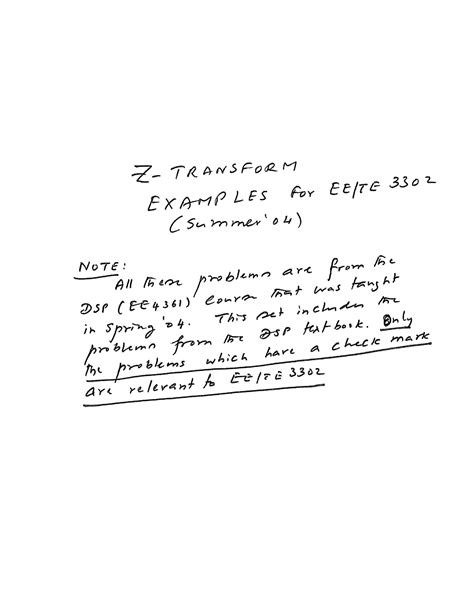 Z-TRANSFORM
EXAMPLES for EE/TE 3302
(Summer '04)
NOTE:
All these problems are from the
DSP (EE4361) Course that was taught
in spring '04. This set includes the
problems from the DSP textbook. Only
the problems which have a check mark
are relevant to EE/TE 3302